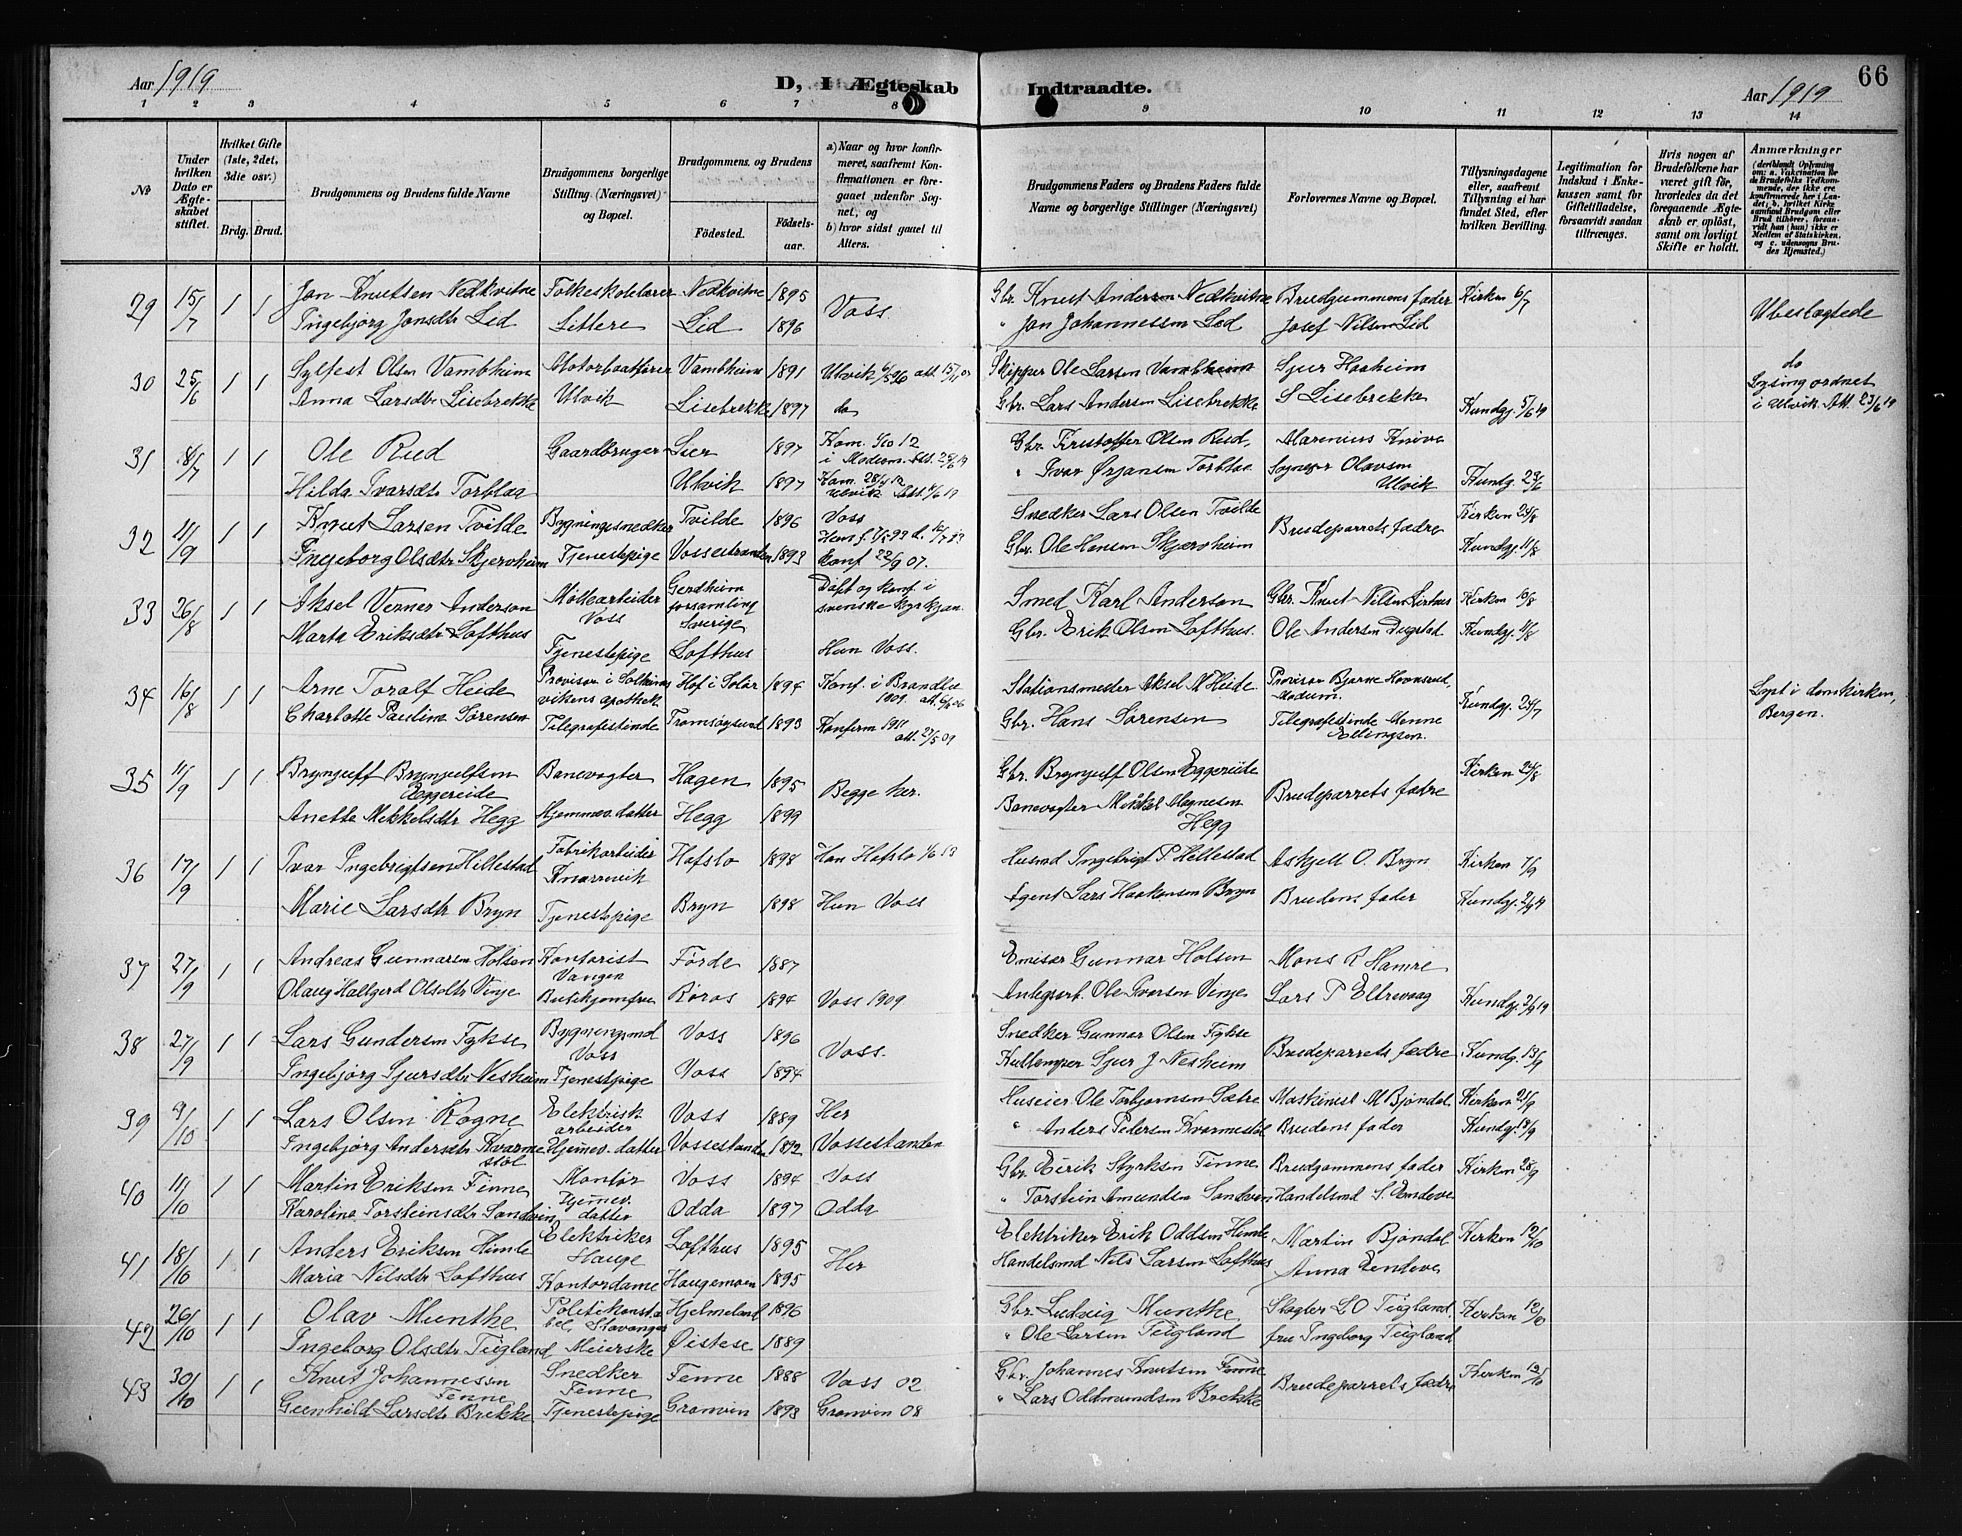 Aar 1919
D, I Ægteskab
Indtraadte.
Aar 1919
66
1 2 3 4 5 6 7 8 9 10 11 12 13 14
No
Under hvilken Dato er Ægteskabet stiftet.
Hvilket Gifte (1ste, 2det, 3die osv.)
Brdg. Brud.
Brudgommens og Brudens fulde Navne
Brudgommens borgerlige Stilling (Næringsvei) og Bopæl.
Brudgommens og Brudens
Fødested.
Fødselsaar.
a) Naar og hvor konfirmeret, saafremt Konfirmationen er foregaaet udenfor Sognet, og
b) hvor sidst gaaet til Alters.
Brudgommens Faders og Brudens Faders fulde Navne og borgerlige Stillinger (Næringsvei)
Forlovernes Navne og Bopæl.
Tillysningsdagene eller, saafremt Tillysning ei har fundet Sted, efter hvilken Bevilling.
Legitimation for Indskud i Enkekassen samt for Giftetilladelse, forsaavidt saadan tiltrænges.
Hvis nogen af Brudefolkene har været gift før, hvorledes da det foregaaende Ægteskab er opløst, samt om lovligt Skifte er holdt.
Anmærkninger
(deriblandt Oplysning om: a. Vaccination for de Brudefolks Vedkommende, der ikke ere konfirmerede her i Landet; b. hvilket Kirkesamfund Brudgom eller Brud tilhører, forsaavidt han (hun) ikke er Medlem af Statskirken, og c. udensogns Brudes Hjemsted.)
29 15/7 1 1 Jon Knutsen Nedkvitne Folkeskolelærer Nedkvitne 1895 Voss Gbr. Knut Andersen Nedkvitne Brudgummens fader Kirken 6/7 Ubeslegtede
Ingebjørg Jonsdtr Lid Littere Lid 1896 " Jon Johannessen Lid Josef Nilsen Lid
30 25/6 1 1 Sylfest Olsen Vambheim Motorbaatfører Vambheim 1891 Ulvik Skipper Ole Larsen Vambheim Sjur Haaheim do
Anna Larsdtr Lisebrekke Ulvik Lisebrekke 1897 do Gbr. Lars Andersen Lisebrekke S Lisebrekke Kundgj. 5/6 19 Lysing ordnet
i Ulvik. Att. 23/6 19
31 8/7 1 1 Ole Rud Gaardbruger Lier 1897 Kom. 1/10 12 Gbr. Kristoffer Olsen Rud, Marenius Knive
i Modum. " Ivar Ørjansen Torblaa Sognepr Olavsen
Hilda Ivarsdtr Torblaa Ulvik 1897 Ulvik Ulvik Kundg. 23/6
32 11/9 1 1 Knut Larsen Tvilde Bygningssnedker Tvilde 1896 Voss Snedker Lars Olsen Tvilde Brudeparrets fædre Kirken 24/8
Ingeborg Olsdtr Skjervheim Tjenestepige Vossestranden 1893 Konf 22/9 07. Gbr. Ole Hansen Skjervheim Kundgj. 11/8
33 26/8 1 1 Aksel Verner Anderson Møllearbeider Gerdheim Døpt og konf. i Smed Karl Anderson Gbr. Knut Nilsen Kirken 10/8
Voss forsamling svenske kyrkjan.
Marta Eriksdtr Lofthus Sverige Gbr. Erik Olsen Lofthus. Ole Andersen Dugstad Kundgj. 11/8
Tjenestepige Lofthus Hun Voss.
34 16/8 1 1 Arne Toralf Heide Provisor i Hof i Solør 1894 Konf. i Brandbu Stationsmester Aksel N Heide Provisor Bjarne Kundgj. 24/7 Lyst i domkirken,
vikens apothek. 1909. Modum. Bergen.
Charlotte Pauline Sørensen Telegrafistinde Tromsøysund 1893 Konfirm 1911 Gbr. Hans Sørensen Telegrafistinde
Ellingsen.
35 11/9 1 1 Brynjulf Brynjulfsen Banevogter Hagen 1895 Begge her. Gbr. Brynjulf Olsen Eggereide Brudeparrets fædre Kirken 24/8
Eggereide
Anette Mikkelsdtr Hegg Hjemmev. datter Hegg 1899 Banevogter Mikkel Magnesen
Hegg
36 17/9 1 1 Ivar Ingebrigtsen Hillestad Fabrikarbeider Hafslo 1898 Han Hafslo Husmd Ingebrigt P. Hillestad Askjell O. Bryn Kirken 7/9
Knarrevik
Marie Larsdtr Bryn Tjenestepige Bryn 1898 Hun Voss Agent Lars Haakonsen Bryn Brudens fader Kundgj. 2/9 19
37 27/9 1 1 Andreas Gunnarsen Holsen Kontorist Førde 1887 Emisær Gunnar Holsen Mons R Hamre
Vangen
Olaug Hallgerd Olsdtr Vinje Butikjomfru Røros 1894 Voss 1909 Anlegsarb. Ole Ivarsen Vinje Lars P Eltrevaag Kundgj. 2/9 19
38 27/9 1 1 Lars Gundersen Fykse Bygningsmd Voss 1896 Voss. Snedker Gunnar Olsen Fykse Brudeparrets fædre Kundg. 13/9
Voss
Ingebjørg Sjursdtr Nesheim Tjenestpige Voss 1894 Kullemper Sjur J Nesheim
39 9/10 1 1 Lars Olsen Rogne Elektrisk Voss 1889 Her Huseier Ole Torbjørnsen Sætre Maskinist M Bjøndal Kirken 21/9
arbeider
Ingebjørg Andersdtr Kvarme Hjemev. datter Vossestanden 1892 Vossestanden " Anders Pedersen Kvarmestøl Brudens fader Kundg.
støl
40 11/10 1 1 Martin Eriksen Finne Montør Voss 1894 Voss Gbr. Eirik Styrksen Finne Brudgommens fader Kirken 28/9
Hjemev.
Karolina Torsteinsdtr Sandven datter Odda 1897 Odda " Torstein Amundsen Sandven Handelsmd S. Endeve
41 18/10 1 1 Anders Eriksen Himle Elektriker Lofthus 1895 Her Elektriker Erik Oddsen Himle Martin Bjøndal Kirken 12/10
Hauge
Maria Nilsdtr Lofthus Kontordame Haugemoen 1895 Handelsmd Nils Larsen Lofthus Anna Endeve
42 26/10 1 1 Olav Munthe Politikonsta Hjelmeland 1896 Gbr Ludvig Munthe Slagter L O Teigland. Kirken 12/10
bel, Stavanger
Ingeborg Olsdtr Teigland Meierske Øistese 1889 " Ole Larsen Teigland fru Ingeborg Teigland
43 30/10 1 1 Knut Johannessen Snedker Fenne 1888 Voss 02 Gbr. Johannes Knutsen Fenne Brudeparrets fædre Kirken 19/10
Fenne Fenne
Gunhild Larsdtr Brekke Tjenestepige Granvin 1893 Granvin 08 " Lars Oddmundsen Brekke